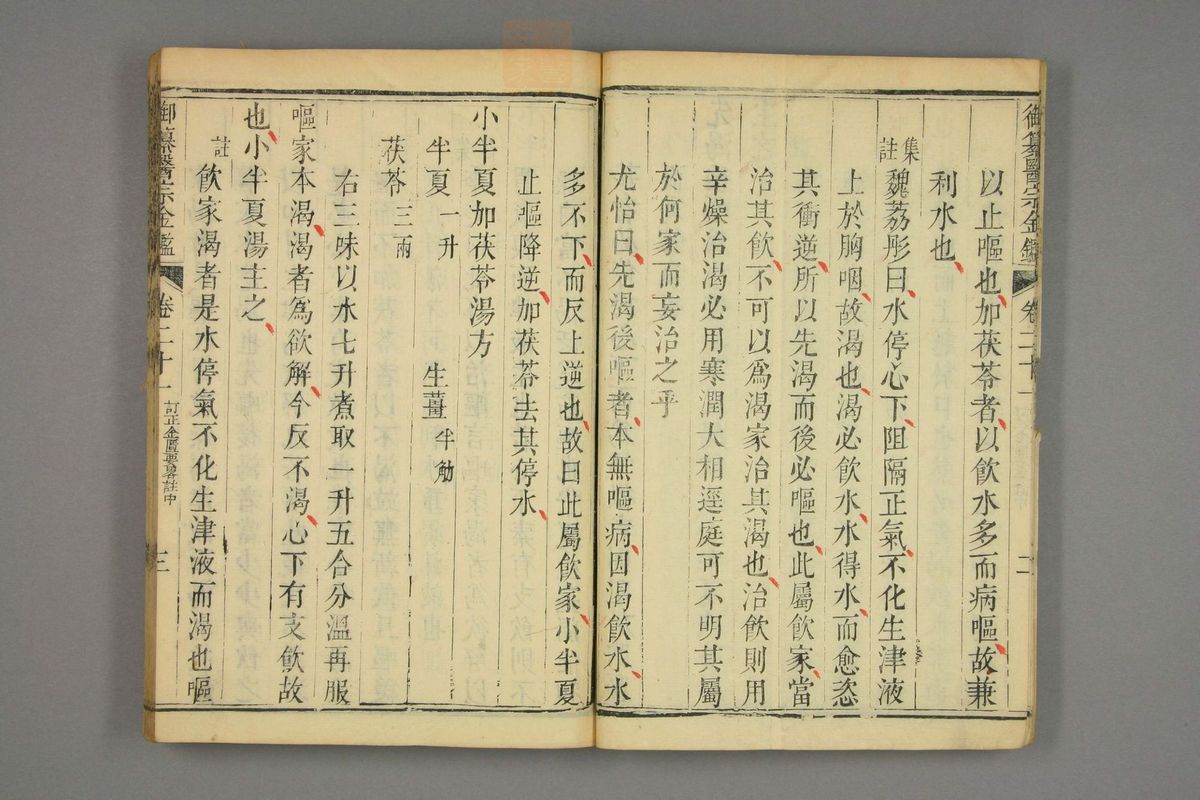 御纂醫宗金鑑 卷二十一 二
以止嘔也加茯苓者以飲水多而病嘔故兼
利水也
集註 魏荔彤曰水停心下阻隔正氣不化生津液
上於胸咽故渴也渴必飲水水得水而愈恣
其衝逆所以先渴而後必嘔也此屬飲家當
治其飲不可以爲渴家治其渴也治飲則用
辛燥治渴必用寒潤大相逕庭可不明其屬
於何家而妄治之乎
尤怡曰先渴後嘔者本無嘔病因渴飲水水
多不下而反上逆也故曰此屬飲家小半夏
止嘔降逆加茯苓去其停水
小半夏加茯苓湯方
半夏一升 生薑半觔
茯苓三兩
右三味以水七升煮取一升五合分溫再服
嘔家本渴渴者爲欲解今反不渴心下有支飲故
也小半夏湯主之
註 飲家渴者是水停氣不化生津液而渴也嘔
御纂醫宗金鑑 卷二十一 訂正金匱要畧註中 三